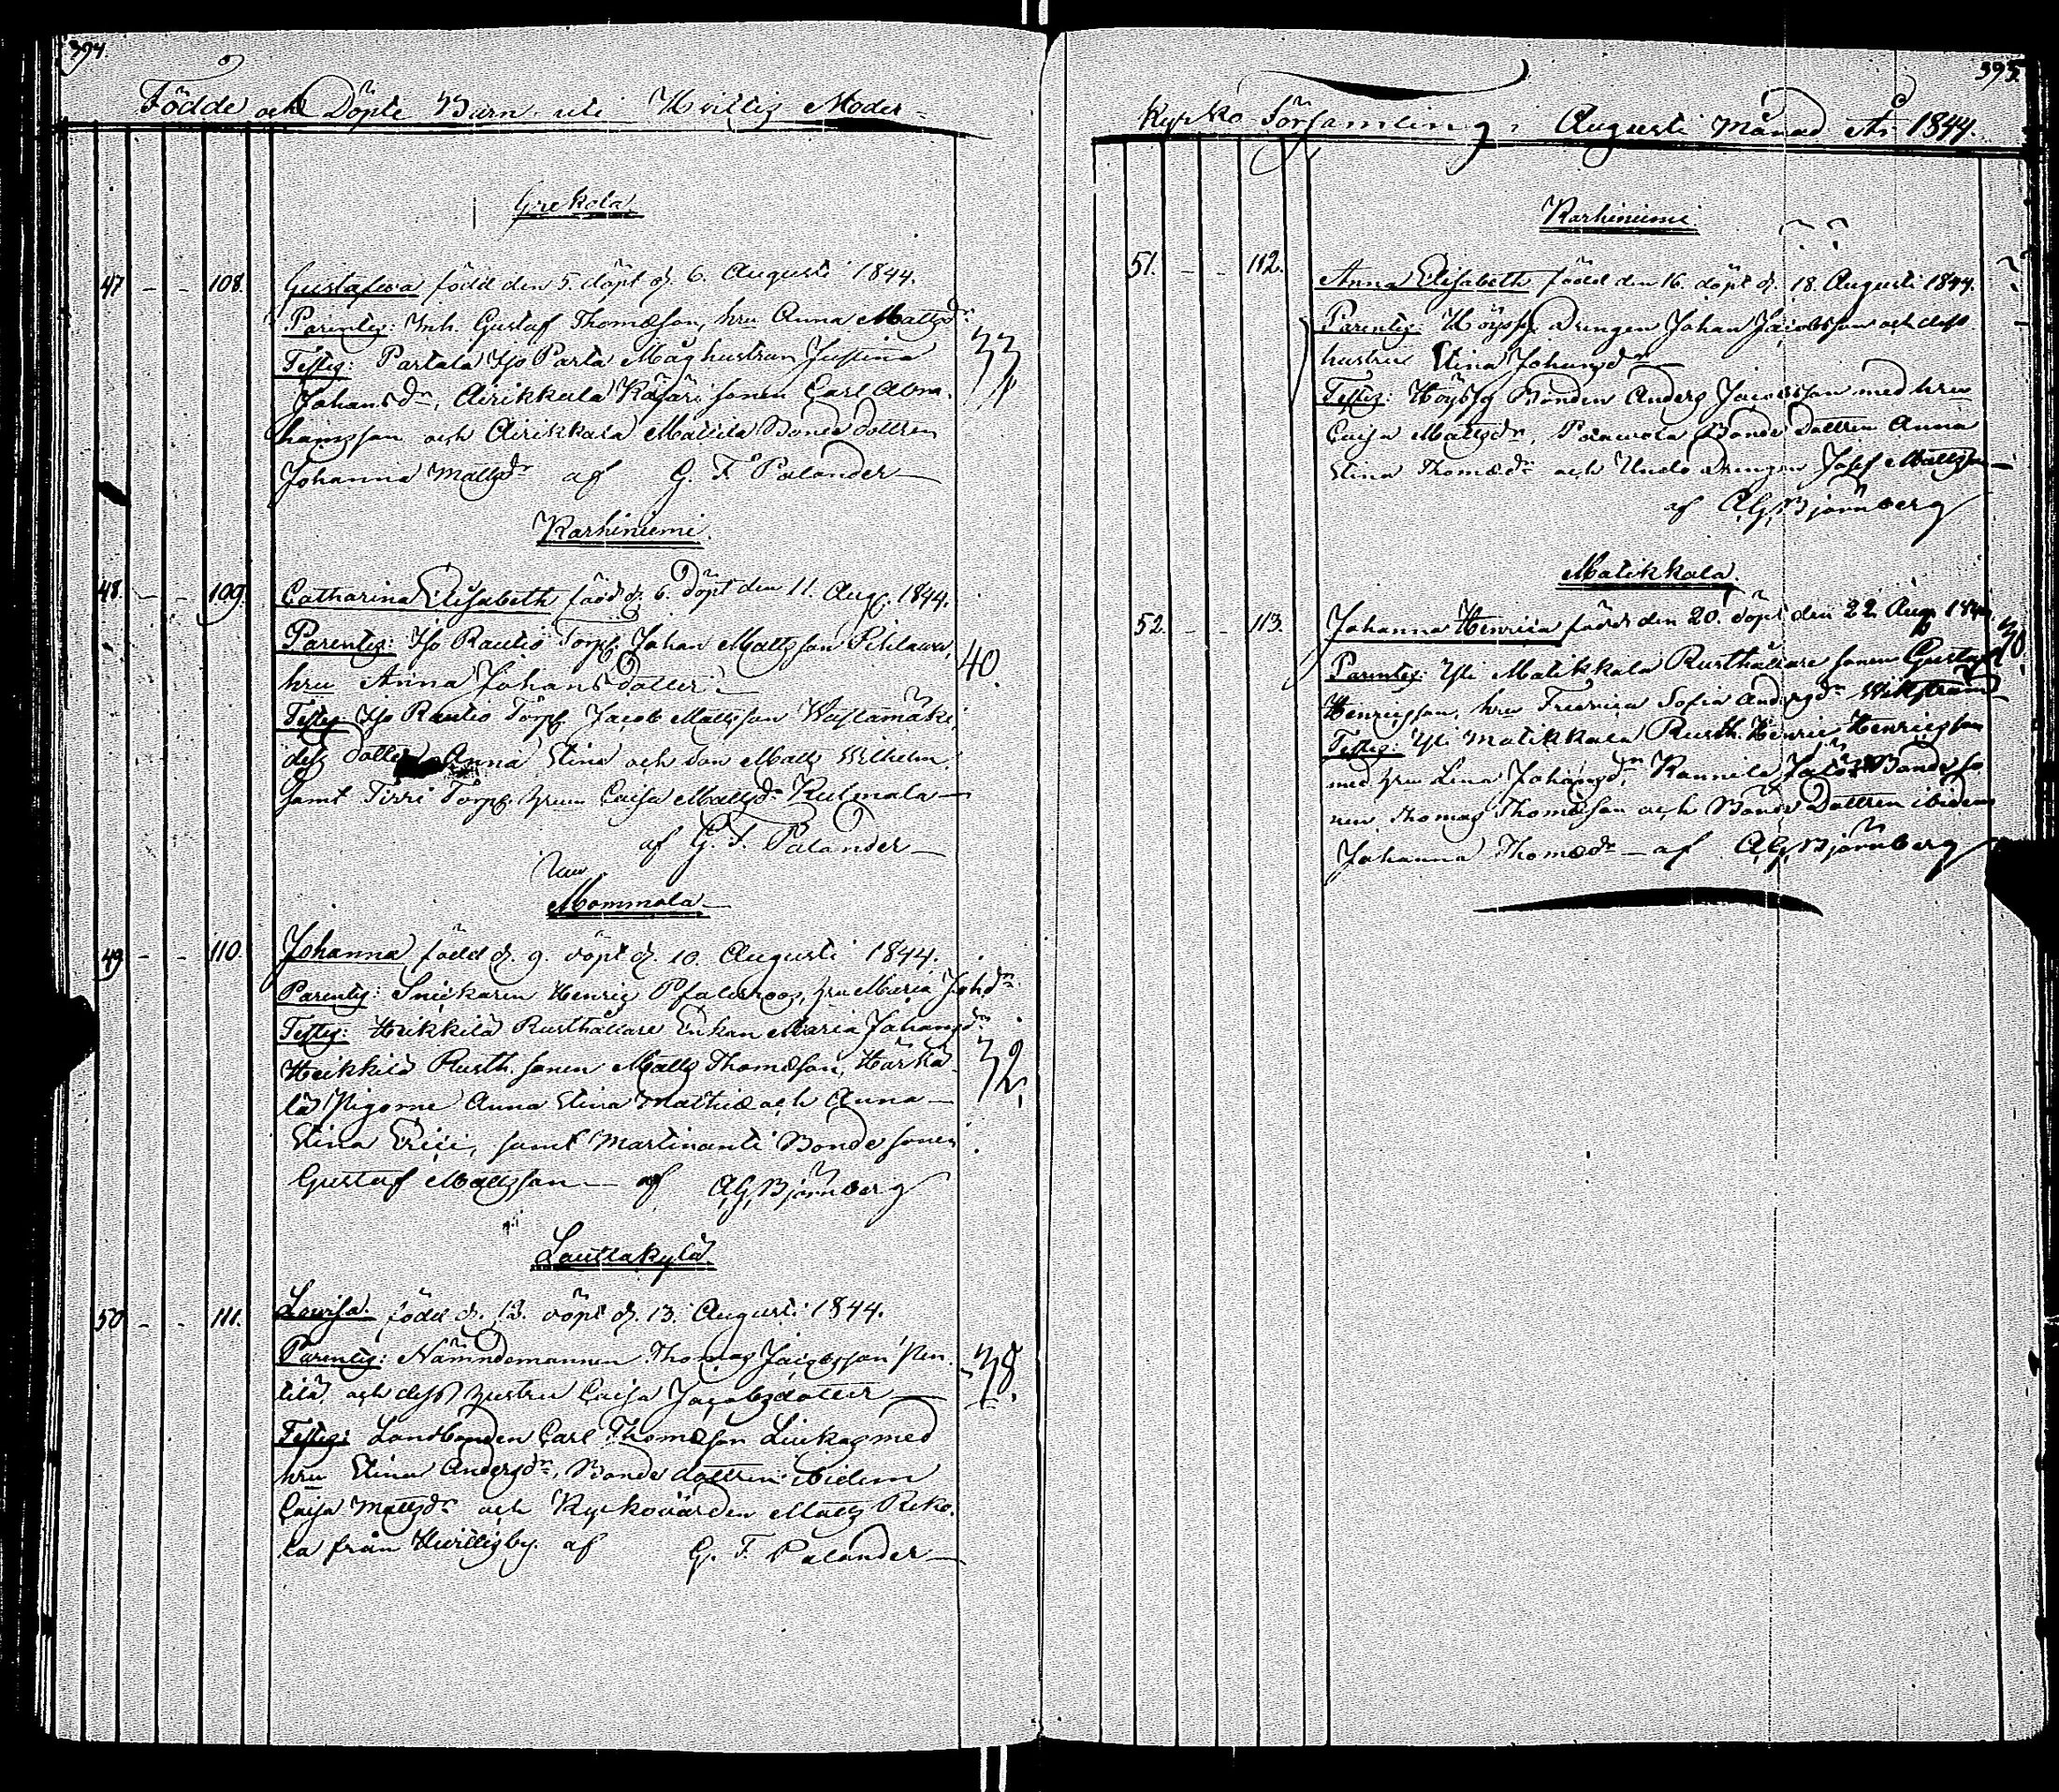 394
Födde och Döpte Barn uti Hvittis Moder-
47 - - 108. Gustafwa född den 5. döpt d. 6. Augusti 1844.
Parentes: Inh. Gustaf Thomæson, hru Anna Mattsdr
33
Testes: Partala Iso Parta Måg hustrun Justina
Johansdr, Airikkala Käsäri sonen Carl Abra-
hamsson och Airikkala Mattila Bonde dottren
Johanna Mattsdr af G. F. Palander
Karhiniemi.
48. - - 109. Catharina Elisabeth född d. 6. Döpt den 11. Aug. 1844.
Parentes: Iso Rautio Torp. Johan Mattsson Pihlawa,
hru Anna Johansdotter
40.
Testes Iso Rautio Torp. Jacob Mattsson
dess dotter Anna Stina och son Matts Wilhelm
samt Torp. hrun Caisa Mattsdr
af G. F. Palander
Mommola
49 - - 110. Johanna född d. 9. döpt d. 10. Augusti 1844.
Parentes: Snickaren Henric hru Maria Johdr
Testes: Heikkilä Rusthållare Enkan Maria Johansdr
Heikkilä Rusth. sonen Matts Thomæson, Härkä-
32.
lä Pigorne Anna Stina Mathiæ och Anna
Stina Erici, samt Martinanti Bonde sonen
Gustaf Mattsson af A.G. Björnberg
Lauttakylä.
50 - - 111. Lovisa. född d. 13. döpt d. 13. Augusti 1844.
Parentes: Nämndemannen Thomas Jacobsson Pen-
38.
tilä och dess hustru Caisa Jacobsdotter
Testes: Landbonden Carl Thomæson Liukas med
hru Stina Andersdr, Bonde dottren ibidem
Caisa Mattsdr och Kyrkovärden Matts Reko-
la från Hvittisby. af G. F. Palander
395.
Kyrko Församling, i Augusti Månad År 1844.
Karhiniemi
51. - - 112. Anna Elisabeth född den 16. döpt d. 18. Augusti 1844.
Parentes: Drengen Johan Jacobsson och dess
hustru Stina Johansdr
Testes: Bonden Anders Jacobsson med hru
Caisa Mattsdr, Bonde Dottren Anna
Stina Thomædr och Drengen Josef Mattsson
af A.G. Björnberg
Matikkala.
52. - - 113. Johanna Henrica född den 20. döpt den 22. Aug. 1844.
30.
Parentes: Yli Matikkala Rusthållare sonen Gustaf
Henricsson, hru Fredrica Sofia Andersdr Wikström
Testes: Yli Matikkala Rusth. Henric Henricsson
med hru Lena Johansdr, Kannila Bonde so-
nen Thomas Thomæson och Bonde Dottren ibidem
Johanna Thomædr af A.G. Björnberg